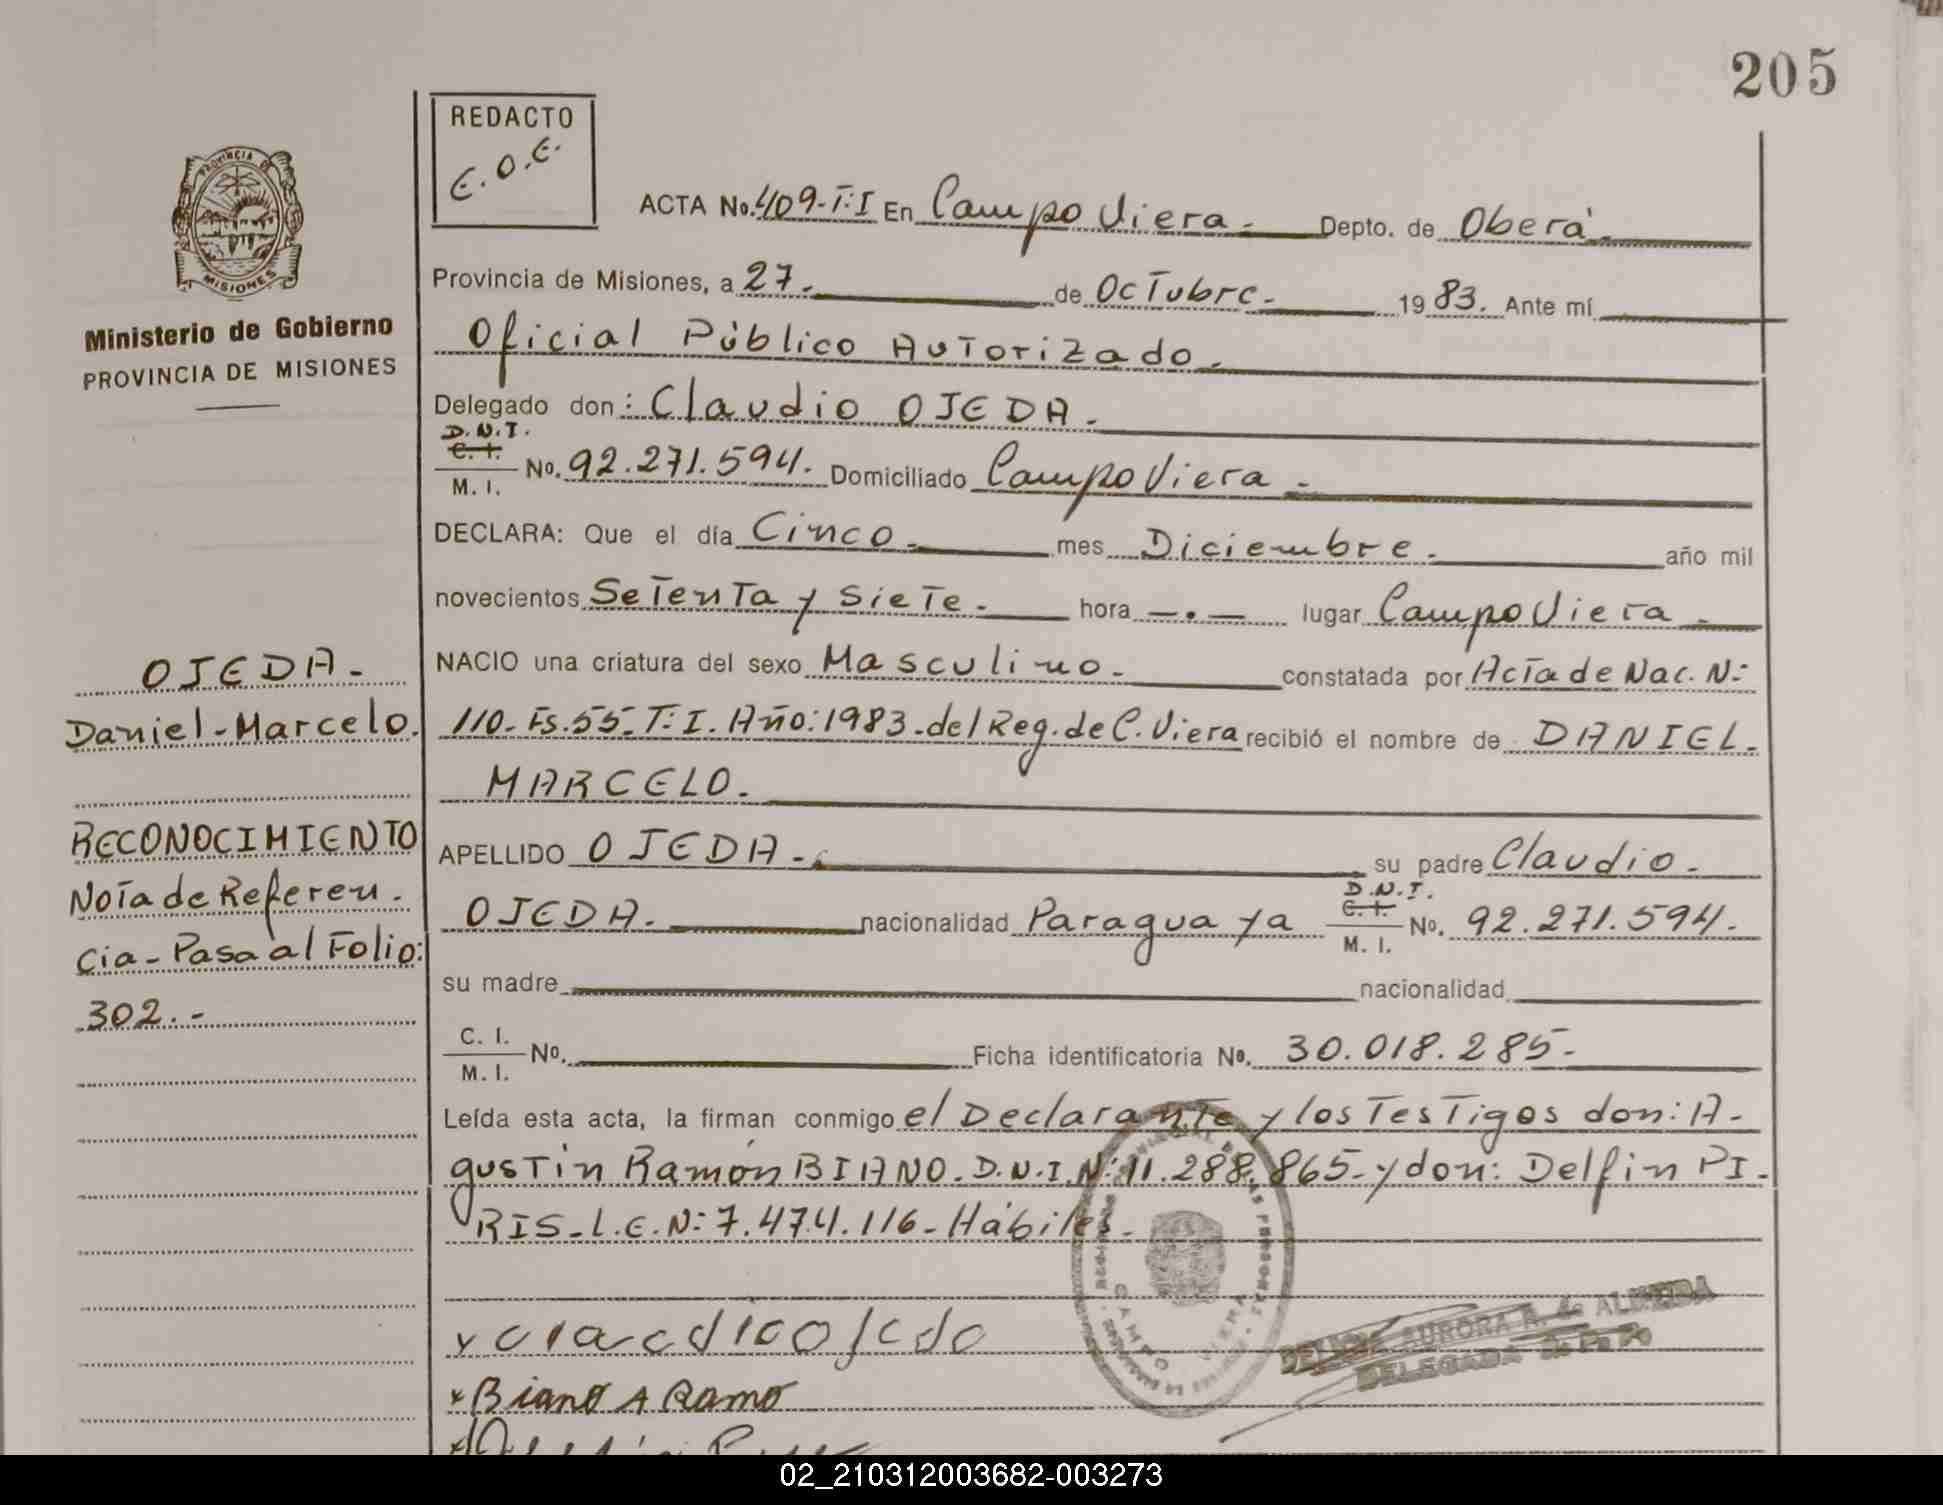 205
REDACTO
E.O.E.
PROVINCIA DE
MISIONES
Ministerio de Gobierno
PROVINCIA DE MISIONES
ACTA No. 409-T:I En Campo Viera.- Depto. de Oberá.
Provincia de Misiones, a 27. de Octubre. 1983. Ante mí
Oficial Público Autorizado.
Delegado don: Claudio OJEDA.
D.N.I.
C. I.
M. I. No. 92.271.594. Domiciliado Campo Viera.
DECLARA: Que el día Cinco. mes Diciembre. año mil
novecientos Setenta y Siete. hora —.— lugar Campo Viera.
NACIO una criatura del sexo Masculino. constatada por Acta de Nac. N:
110- Fs.55- T:I. Año:1983.del Reg. de C. Viera recibió el nombre de DANIEL.
MARCELO.
APELLIDO OJEDA. su padre Claudio.
OJEDA. nacionalidad Paraguaya D.N.I. C. I. M. I. No. 92.271.594.
su madre nacionalidad
C. I.
M. I. No. Ficha identificatoria No. 30.018.285-
Leída esta acta, la firman conmigo el Declarante y los Testigos don: A-
gustin Ramón BIANO. D.N.I.N: 11.288.865- y don: Delfin PI-
RIS- L.E.N: 7.474.116- Hábiles.
OJEDA.
Daniel-Marcelo.
RECONOCIMIENTO
Nota de Referen.
cia- Pasa al Folio:
302.-
CAMPO VIERA
AURORA A. de ALMEIDA
DELEGADA
x Biano A Ramo
02_210312003682-003273